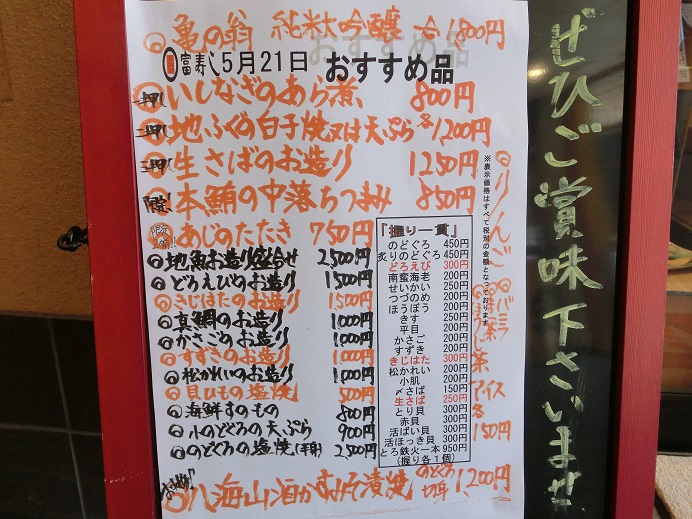 亀の翁 純米大吟醸 一合 1,800円
富寿し 5月21日 おすすめ品
一押し いしなぎのあら煮 800円
二押し 地ふぐの白子焼又は天ぷら 各1,200円
三押し 生さばのお造り 1250円
限定 本鮪の中落ちつまみ 850円
あじのたたき 750円
地魚お造り盛合せ 2500円
どろえびのお造り 1500円
きじはたのお造り 1500円
真鯛のお造り 1000円
かさごのお造り 1000円
すずきのお造り 1000円
松かれいのお造り 1000円
貝ひもの塩焼 500円
海鮮すのもの 800円
小のどぐろの天ぷら 900円
のどぐろの塩焼(半身) 2500円
八海山酒かすみそ漬焼 のどぐろ 1,200円
「握り一貫」
のどぐろ 450円
炙りのどぐろ 450円
どろえび 300円
南蛮海老 200円
せいかい 250円
つづのめ 200円
ほうぼう 200円
きす 250円
平目 200円
かさご 200円
すずき 200円
きじはた 300円
松かれい 200円
小肌 200円
〆さば 150円
生さば 250円
とり貝 300円
赤貝 300円
活ばい貝 300円
活ほっき貝 300円
とろ鉄火一本 950円
(握り各1個)
※表示価格はすべて税別の金額となっております
りんご バニラ
抹茶 アイス
各150円
ぜひご賞味下さいませ